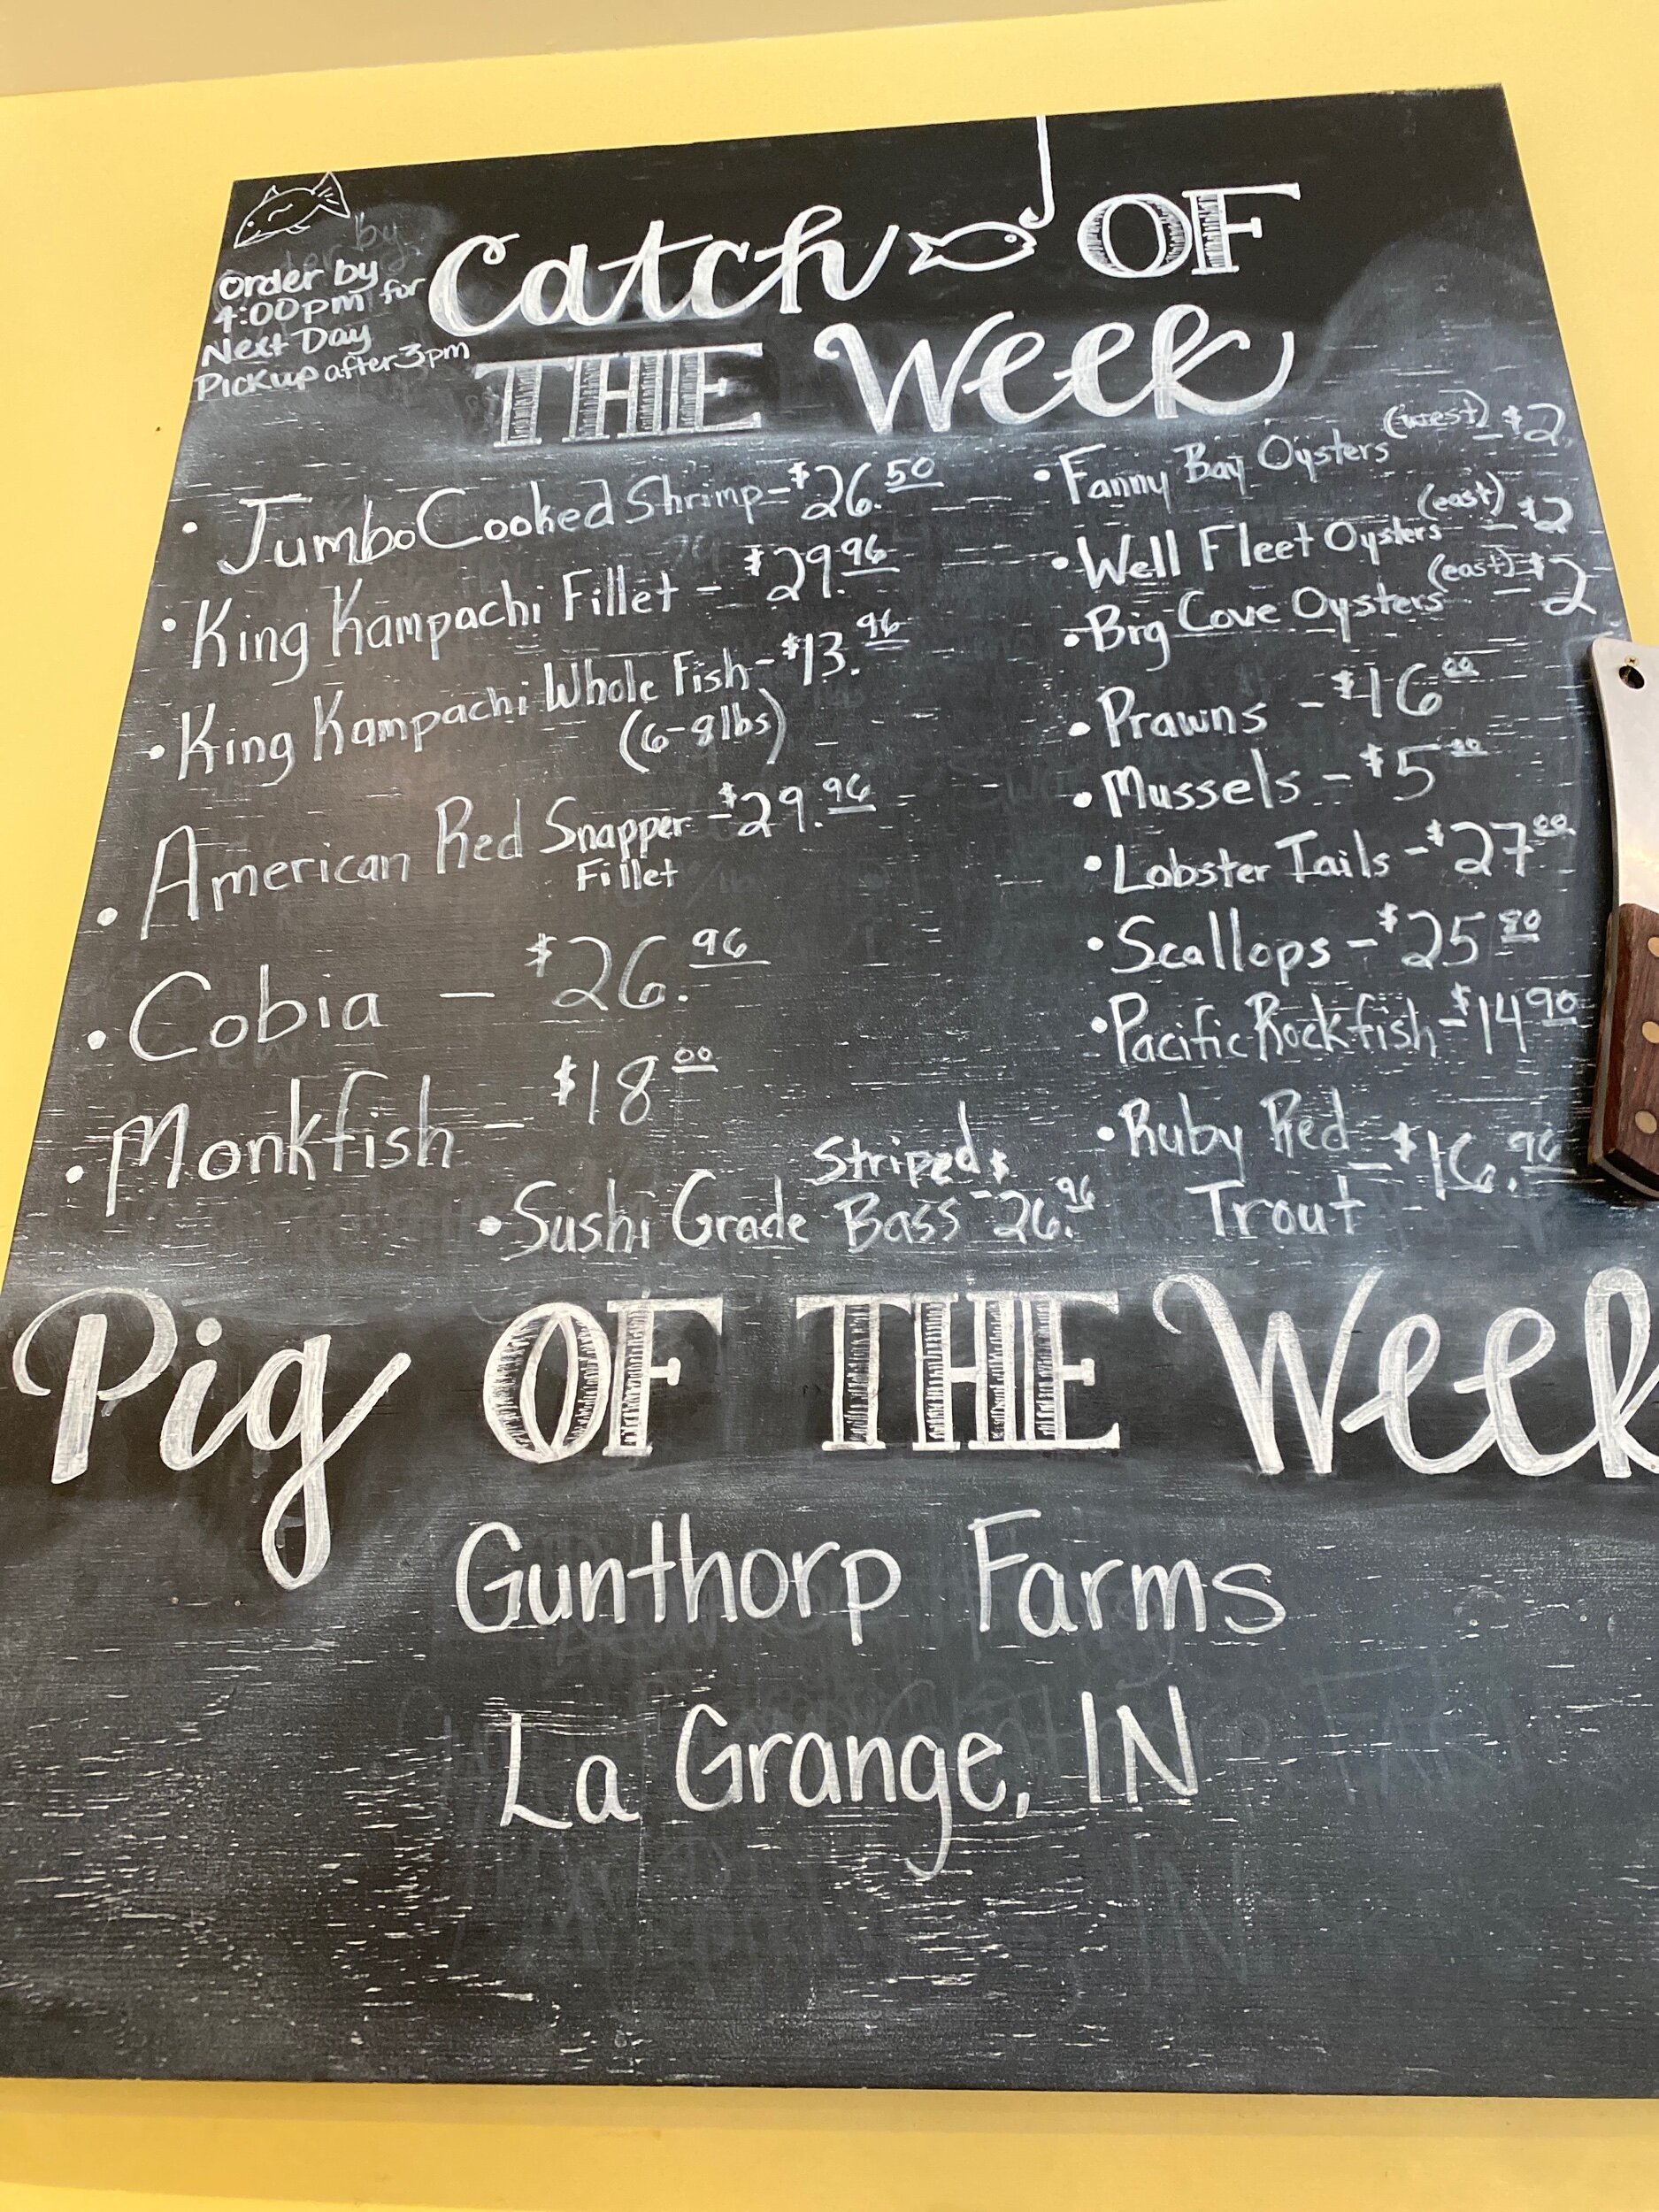 Order by
4:00pm for
Next Day
Pickup after 3pm
Catch OF
THE Week
• Jumbo Cooked Shrimp - $26.50
• King Kampachi Fillet - $29.96
• King Kampachi Whole Fish - $13.96
(6-8lbs)
• American Red Snapper - $29.96
Fillet
• Cobia - $26.96
• Monkfish - $18.00
• Fanny Bay Oysters (west) - $2
• Well Fleet Oysters (east) - $2
• Big Cove Oysters (east) - $2
• Prawns - $16.00
• Mussels - $5.00
• Lobster Tails - $27.00
• Scallops - $25
• Pacific Rockfish - $14.90
• Ruby Red
Trout - $16.96
• Sushi Grade Striped Bass - $26.96
Pig OF THE Week
Gunthorp Farms
La Grange, IN